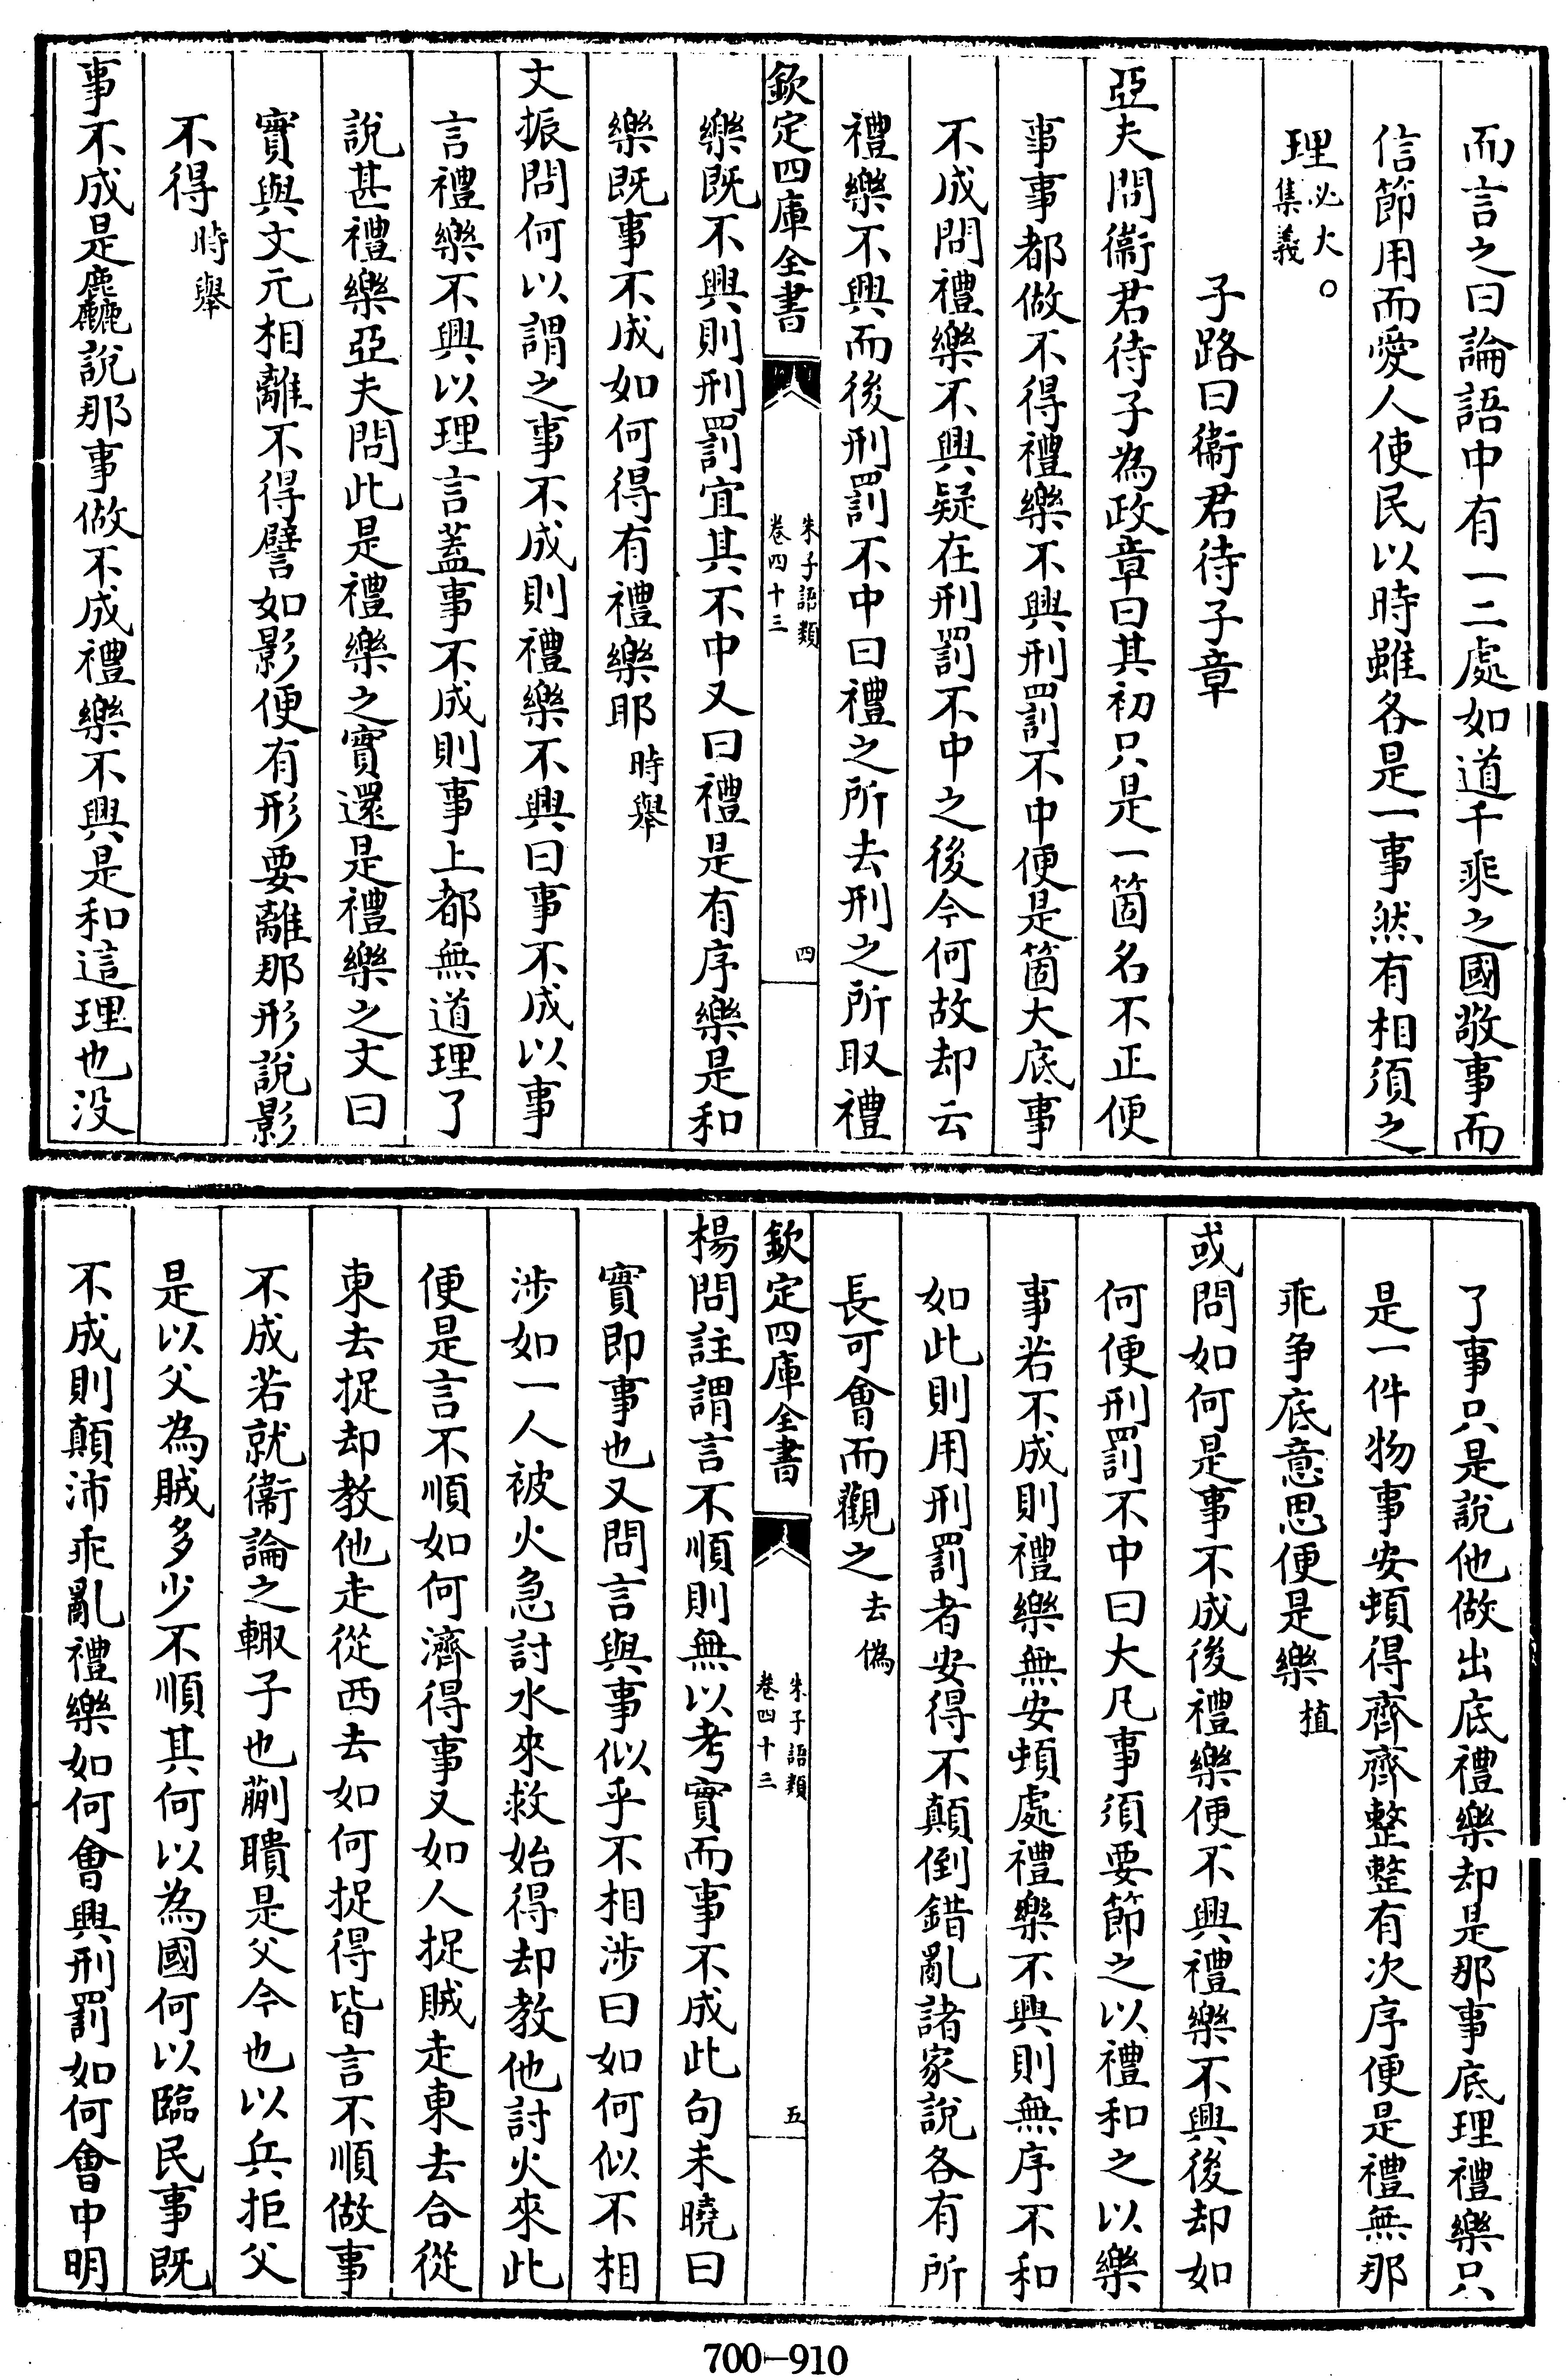 而言之曰論語中有一二處如道千乘之國敬事而
信節用而愛人使民以時雖各是一事然有相須之
理必大○集義
子路曰衞君待子章
亞夫問衞君待子為政章曰其初只是一箇名不正便
事事都做不得禮樂不興刑罰不中便是箇大底事
不成問禮樂不興疑在刑罰不中之後今何故却云
禮樂不興而後刑罰不中曰禮之所去刑之所取禮
欽定四庫全書
朱子語類
卷四十三
四
樂既不興則刑罰宜其不中又曰禮是有序樂是和
樂既事不成如何得有禮樂耶時舉
文振問何以謂之事不成則禮樂不興曰事不成以事
言禮樂不興以理言蓋事不成則事上都無道理了
說甚禮樂亞夫問此是禮樂之實還是禮樂之文曰
實與文元相離不得譬如影便有形要離那形說影
不得時舉
事不成是麤說那事做不成禮樂不興是和這理也没
了事只是說他做出底禮樂却是那事底理禮樂只
是一件物事安頓得齊齊整整有次序便是禮無那
乖争底意思便是樂植
或問如何是事不成後禮樂便不興禮樂不興後却如
何便刑罰不中曰大凡事須要節之以禮和之以樂
事若不成則禮樂無安頓處禮樂不興則無序不和
如此則用刑罰者安得不顛倒錯亂諸家說各有所
長可會而觀之去偽
欽定四庫全書
朱子語類
卷四十三
五
楊問註謂言不順則無以考實而事不成此句未曉曰
實即事也又問言與事似乎不相涉曰如何似不相
涉如一人被火急討水來救始得却教他討火來此
便是言不順如何濟得事又如人捉賊走東去合從
東去捉却教他走從西去如何捉得皆言不順做事
不成若就衞論之輙子也蒯聵是父今也以兵拒父
是以父為賊多少不順其何以為國何以臨民事既
不成則顛沛乖亂禮樂如何會興刑罰如何會中明
700-910